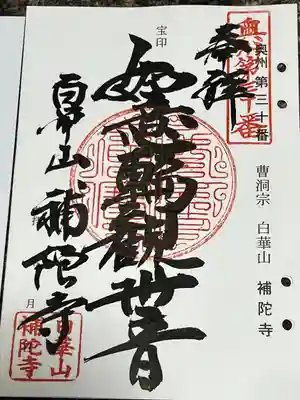 奥州第三十番
奉拝
奥州 第三十番
曹洞宗 白華山 補陀寺
宝印
如意輪観世音
白華山 補陀寺
月
白華山
補陀寺